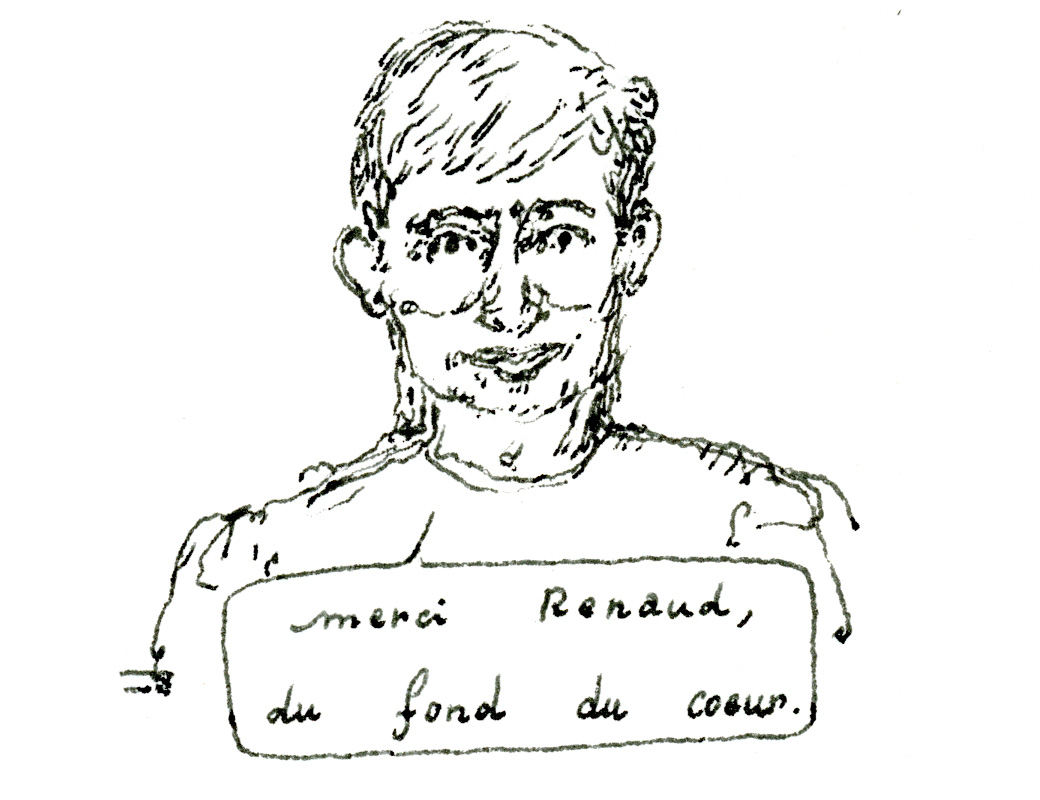 merci Renaud,
du fond du coeur.